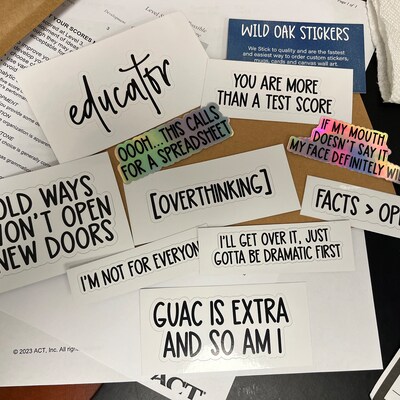 WILD OAK STICKERS
We Stick to quality and are the fastest
and easiest way to order custom stickers,
mugs, cards and canvas wall art.
educator
YOU ARE MORE
THAN A TEST SCORE
OOOH...THIS CALLS
FOR A SPREADSHEET
IF MY MOUTH
DOESN'T SAY IT
MY FACE DEFINITELY WI
OLD WAYS
WON'T OPEN
NEW DOORS
[OVERTHINKING]
FACTS > OP
I'M NOT FOR EVERYON
I'LL GET OVER IT, JUST
GOTTA BE DRAMATIC FIRST
GUAC IS EXTRA
AND SO AM I
© 2023 ACT, Inc. All rights
ACT